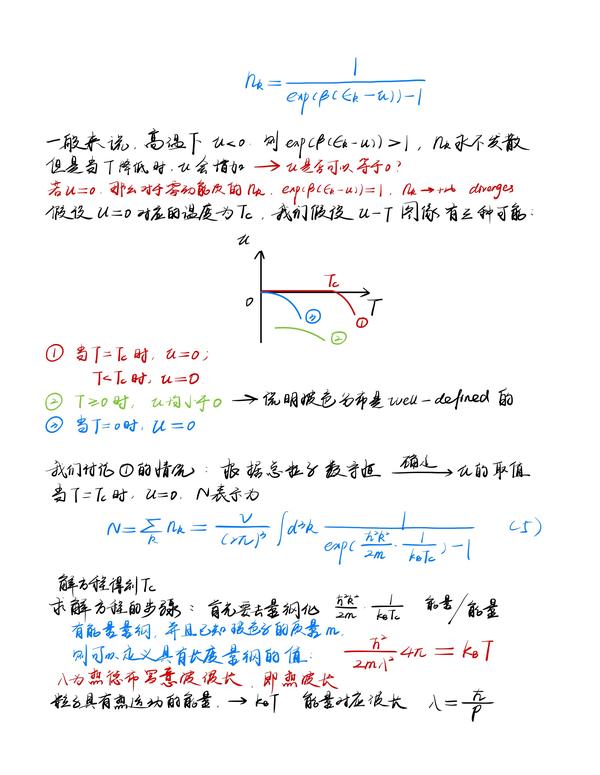 n_k = 1 / (exp(β(ε_k − u)) − 1)
一般来说，高温下 u<0. 则 exp(β(ε_k−u))>1，n_k 永不发散
但是当T降低时，u会增加 → u是否可以等于0?
若u=0. 那么对于零动能态的n_k, exp(β(ε_k−u))=1, n_k→+∞ diverges
假设 u=0 对应的温度为Tc，我们假设 u-T 图像有三种可能：
u
Tc
0
T
③
②
①
① 当T=Tc时，u=0；
T<Tc时，u=0
② T≥0时，u均小于0 → 说明玻色分布是well-defined的
③ 当T=0时，u=0
我们讨论①的情况：根据总粒子数守恒 确定→ u的取值
当T=Tc时，u=0. N表示为
N = Σ_k n_k = V/(2π)^3 ∫d^3k 1/(exp(ħ²k²/2m · 1/(k_BTc)) − 1) (5)
解方程得到Tc
求解方程的步骤：首先要去量纲化 ħ²k²/2m · 1/(k_BTc) 能量/能量
有能量量纲，并且已知玻色子的质量m,
则可以定义具有长度量纲的值： ħ²/(2mλ²) 4π = k_BT
λ为热德布罗意波波长，即热波长
粒子具有热运动的能量. → k_BT 能量对应波长 λ = ħ/p